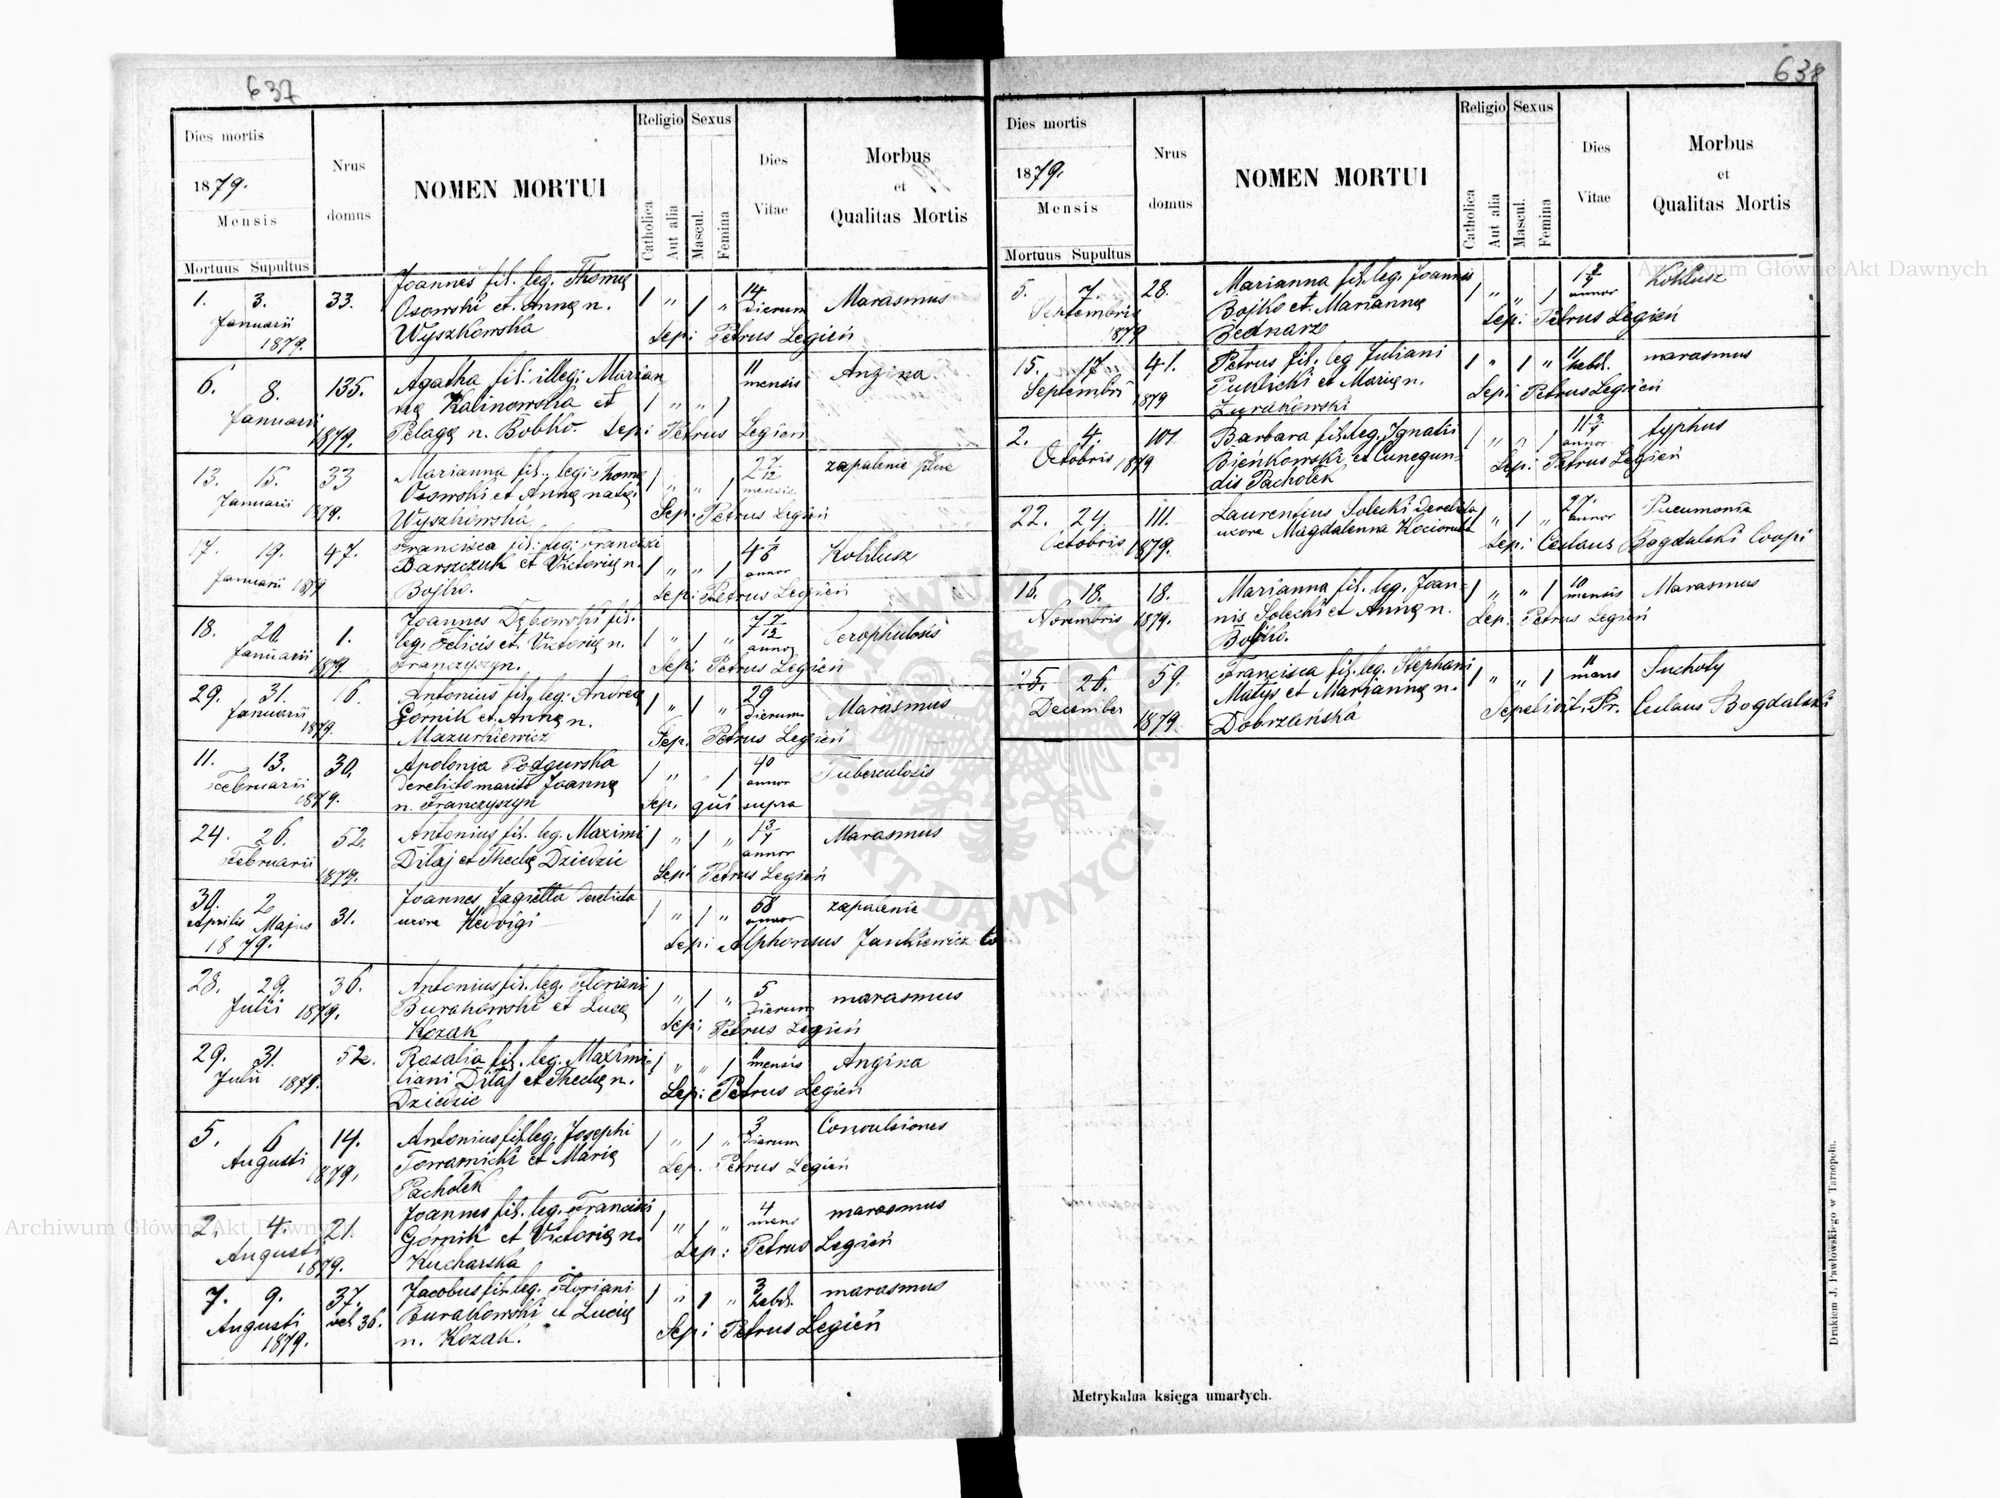 637
Dies mortis
1879.
Mensis
Mortuus Supultus
Nrus
domus
NOMEN MORTUI
Religio
Catholica
Aut alia
Sexus
Mascul.
Femina
Dies
Vitae
Morbus
et
Qualitas Mortis
1. 3. 33. Joannes fil. leg. Thomę 1 " 1 " 14 Marasmus
Januarii Osowski et Annę n. dierum
1879. Wyszkowska Sepi: Petrus Legień
6. 8. 135. Agatha fil: illegi: Marian 11 Angina
Januarii nę Kalinowska et 1 " " 1 mensis
1879. Pelagę n. Bobko. Sepi: Petrus Legień
13. 15. 33 Marianna fil: legi: Thomę 1 " " 1 2 7/12 zapalenie płuc
Januarii 1879. Osowski et Annę natęi mensis
Wyszkowska Sepi: Petrus Legień
17. 19. 47. Francisca fil: leg: Francisci 4 1/6 Koklusz
Januarii 1879 Barszczuk et Victorię n. 1 " " 1 annor
Bojko. Sepi: Petrus Legień
18. 20. 1. Joannes Dębowski fil. 7 7/12
Januarii leg. Felicis et Victorię n. 1 " 1 " annor
1879. Franczyszyn. Sepi: Petrus Legień
29. 31. 16. Antonius fil. leg: Andreę 1 " 1 " 29 Marasmus
Januarii Górnik et Annę n. dierum
1879. Mazurkiewicz Sep. Petrus Legień
11. 13. 30. Apolonia Podgurska 40 Tuberculosis
Februarii derelicto marito Joanne 1 " " 1 annor
1879. n. Franczyszyn Sep. qui supra
24. 26. 52. Antonius fil. leg. Maximi 1 " 1 " 1 3/4 Marasmus
Februarii Diłaj et Theclę Dziedzic annor
1879. Sepi Petrus Legień
30. 2 31. Joannes Jagiełła derelicta 68 zapalenie
Aprilis Majus uxore Hedvigi 1 " 1 " annor
1879. Sepi Alphonsus Jankiewicz
28. 29. 36. Antonius fil. leg. Floriani 1 " 1 " 5 marasmus
Julii 1879. Burakowski et Lucę dierum
Kozak Sepi Petrus Legień
29. 31. 52. Rosalia fil. leg. Maximi- 1 " " 1 11 mensis Angina
Julii 1879. liani Diłaj et Theclę n.
Dziedzic Sepi: Petrus Legień
5. 6 14. Antonius fil. leg. Josephi 1 " 1 " 3 Convulsiones
Augusti Towarnicki et Marię dierum
1879. Pachołek Sep. Petrus Legień
2. 4. 21. Joannes fil. leg. Francisci 1 " 1 " 4 marasmus
Augusti Górnik et Victorię n. mens
1879. Kucharska Sep: Petrus Legień
7. 9. 37. Jacobus fil. leg. Floriani 1 " 1 " 3 marasmus
Augusti vel 36. Burakowski et Lucię hebd.
1879. n. Kozak. Sepi Petrus Legień
638
Dies mortis
1879.
Mensis
Mortuus Supultus
Nrus
domus
NOMEN MORTUI
Religio
Catholica
Aut alia
Sexus
Mascul.
Femina
Dies
Vitae
Morbus
et
Qualitas Mortis
5. 7. 28. Marianna fil. leg. Joannis 1 " " 1 annor Koklusz
Septembris Bojko et Mariannę
1879 Bednarz Sep: Petrus Legień
15. 17. 41. Petrus fil. leg Juliani 1 " 1 " 11 hebd. marasmus
Septembri 1879 et Marię n. Sepi Petrus Legień
Żurakowski
2. 4. 101 Barbara fil. leg. Ignatii 1 " " 1 11 3/4 typhus
Octobris 1879 Bieńkowski et Cunegun- annor
dis Pachołek Sepi: Petrus Legień
22. 24. 111. Laurentius Solecki derelicta 1 " 1 " 27. Pneumonia
Octobris 1879. uxore Magdalenna annor
Sepi: Ceslaus Bogdalski Coopi
16. 18. 18. Marianna fil. leg. Joan- 1 " " 1 10 Marasmus
Novembris 1879. nis Solecki et Annę n. mensis
Bojko. Sep. Petrus Legień
25. 26. 59. Francisca fil. leg. Stephani 1 " " 1 11 mens Suchoty
December Małys et Mariannę n.
1879 Dobrzańska Sepelivit. Pr. Ceslaus Bogdalski
Metrykalna księga umarłych.
Drukiem J. Pawłowskiego w Tarnopolu.
Archiwum Główne Akt Dawnych
Archiwum Główne Akt Dawnych
ARCHIWUM GŁÓWNE AKT DAWNYCH